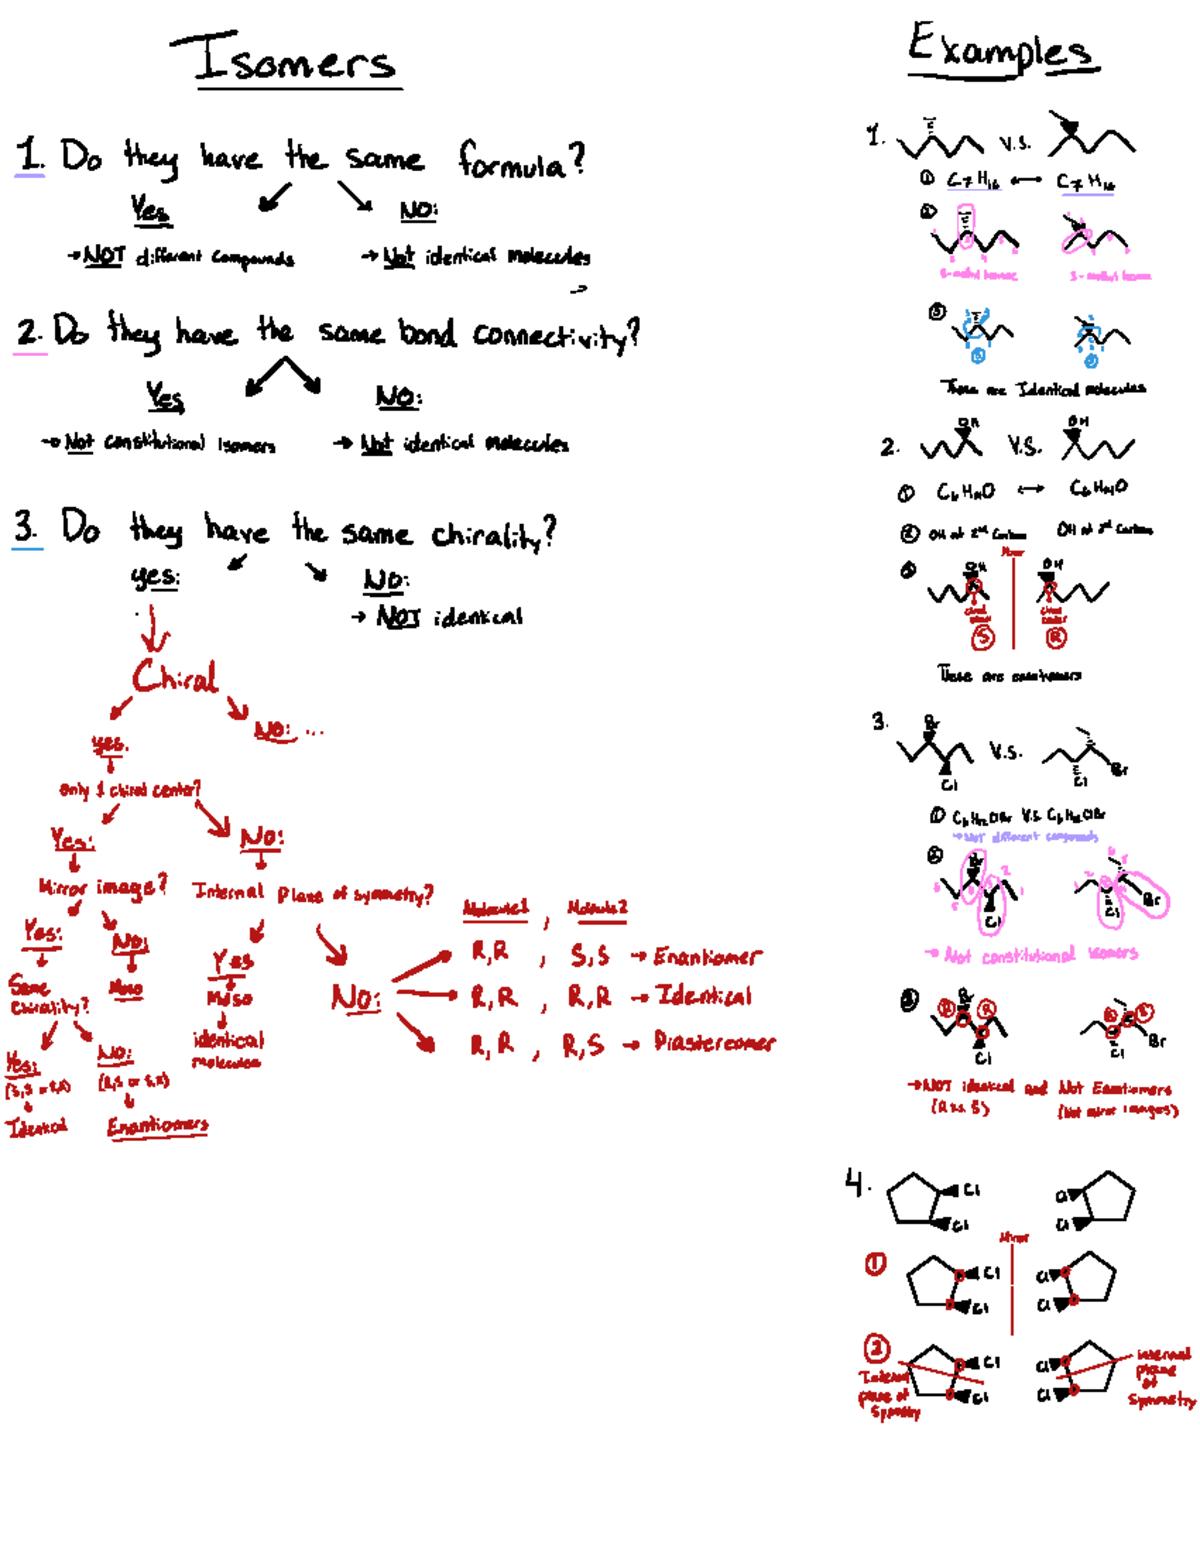 Isomers
1. Do they have the same formula?
Yes
NO:
→ NOT different compounds
→ Not identical molecules
2. Do they have the same bond connectivity?
Yes
NO:
→ Not constitutional Isomers
→ Not identical molecules
3. Do they have the same chirality?
yes:
NO:
→ NOT identical
Chiral
yes.
NO: ...
only 1 chiral center?
Yes:
NO:
Mirror image?
Internal Plane of symmetry?
Yes:
NO:
Yes
NO:
Same
Chirality?
Meso
identical
molecules
Yes:
NO:
Identical
Enantiomers
Molecule1 , Molecule2
R,R , S,S → Enantiomer
R,R , R,R → Identical
R,R , R,S → Diastereomer
Examples
1. V.S.
① C7H16 ↔ C7H16
②
3-methyl hexane
③
These are Identical molecules
2. OH V.S. OH
① C6H14O ↔ C6H14O
② OH at 2nd Carbon OH at 2nd Carbon
Mirror
③ OH OH
S R
These are enantiomers
3. Br Cl V.S. Cl Br
① C6H12ClBr V.S. C6H12ClBr
→ Not different compounds
②
Br Cl Cl Br
→ Not constitutional isomers
③ Br Cl Cl Br
→ NOT identical and Not Enantiomers
(R vs. S) (Not mirror images)
4. Cl Cl Cl Cl
Mirror
① Cl Cl Cl Cl
② Cl Cl Cl Cl
Internal
plane of
Symmetry
internal
plane
of
Symmetry